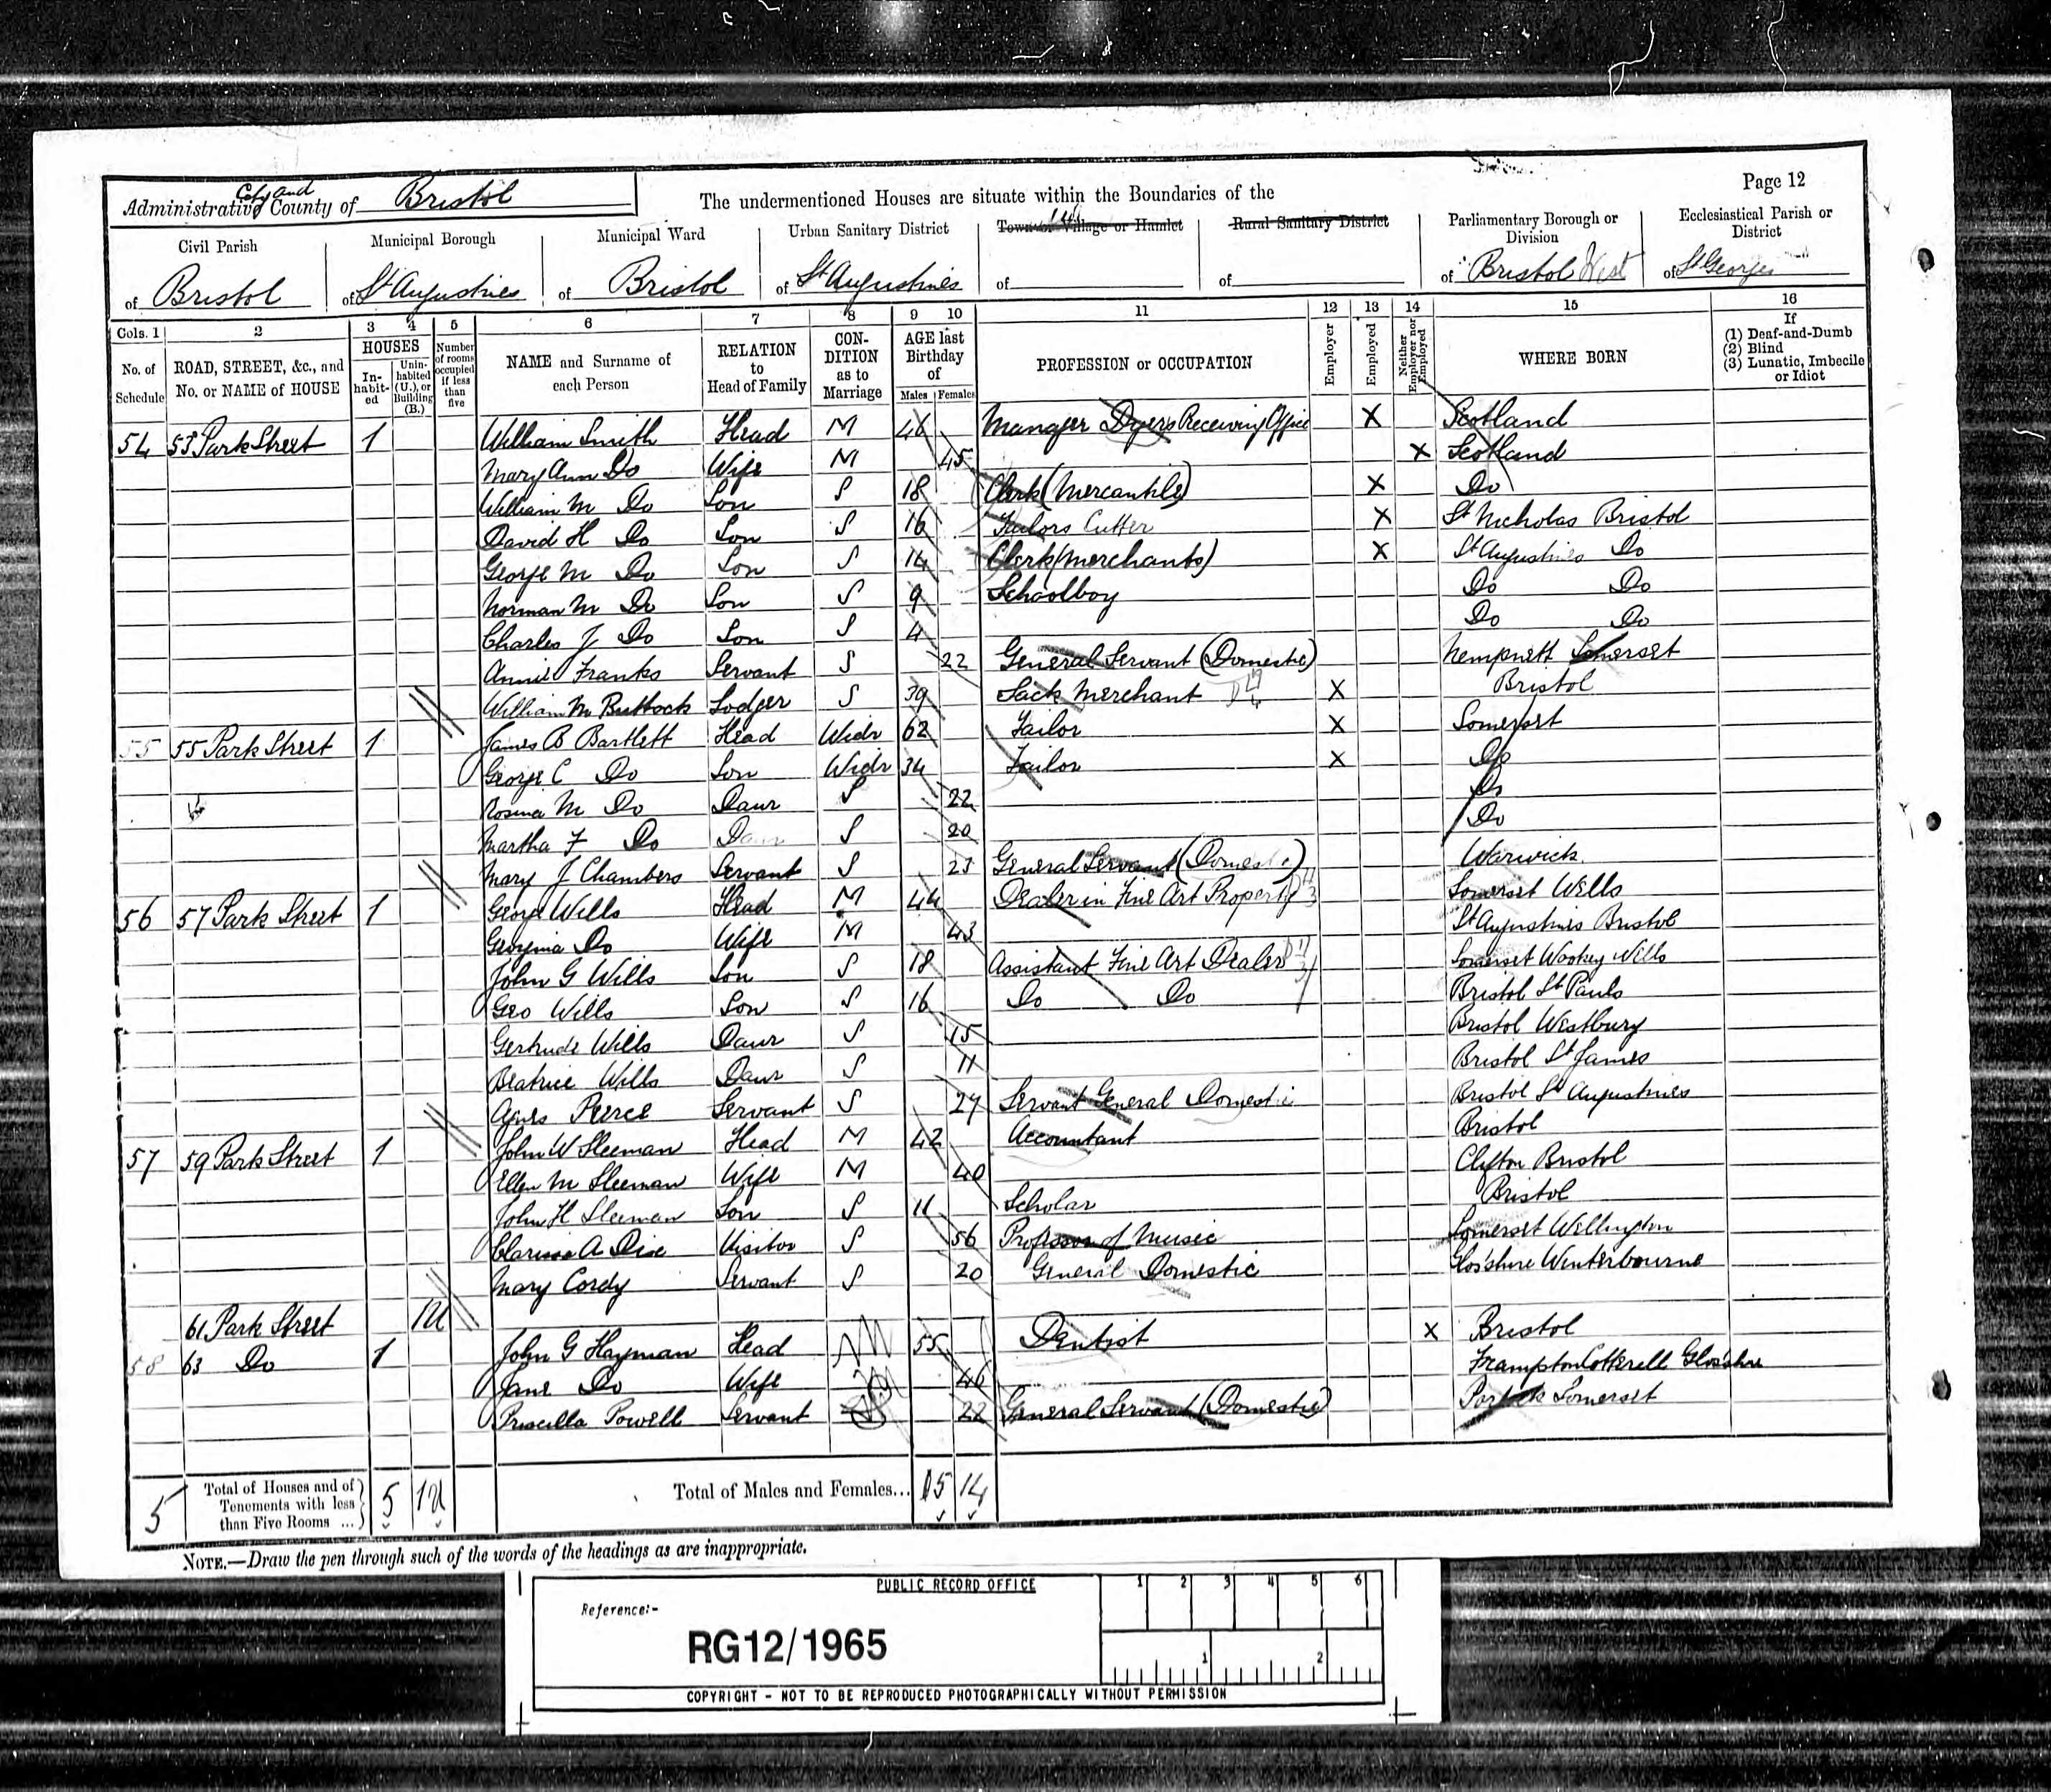 Page 12
Administrative County of City and Bristol
The undermentioned Houses are situate within the Boundaries of the
Civil Parish of Bristol
Municipal Borough of St Augustines
Municipal Ward of Bristol
Urban Sanitary District of St Augustines
Town or Village or Hamlet of
Rural Sanitary District of
Parliamentary Borough or Division of Bristol West
Ecclesiastical Parish or District of St Georges
Cols. 1 2 3 4 5 6 7 8 9 10 11 12 13 14 15 16
No. of Schedule
ROAD, STREET, &c., and No. or NAME of HOUSE
HOUSES
In-habit-ed
Unin-habited (U.), or Building (B.)
Number of rooms occupied if less than five
NAME and Surname of each Person
RELATION to Head of Family
CON-DITION as to Marriage
AGE last Birthday of
Males Females
PROFESSION or OCCUPATION
Employer
Employed
Neither Employer nor Employed
WHERE BORN
If
(1) Deaf-and-Dumb
(2) Blind
(3) Lunatic, Imbecile or Idiot
54 53 Park Street 1 William Smith Head M 46 Manager Dyers Receiving Office X Scotland
Mary Ann Do Wife M 45 X Scotland
William M Do Son S 18 Clerk (Mercantile) X Do
David H Do Son S 16 Tailors Cutter X St Nicholas Bristol
George M Do Son S 14 Clerk (Merchants) X St Augustines Do
Norman M Do Son S 9 Schoolboy Do Do
Charles J Do Son S 4 Do Do
Annie Franks Servant S 22 General Servant (Domestic) Nempnett Somerset
William M Buttock Lodger S 39 Sack Merchant X Bristol
55 55 Park Street 1 James B Bartlett Head Widr 62 Tailor X Somerset
George C Do Son Widr 34 Tailor X Do
Rosina M Do Daur S 22 Do
Martha F Do Daur S 20 Do
Mary J Chambers Servant S 23 General Servant (Domestic) Warwick
56 57 Park Street 1 George Wills Head M 44 Dealer in Fine Art Property Somerset Wells
Georgina Do Wife M 43 St Augustines Bristol
John G Wills Son S 18 Assistant Fine Art Dealer Somerset Wookey Wells
Geo Wills Son S 16 Do Do Bristol St Pauls
Gertrude Wills Daur S 15 Bristol Westbury
Beatrice Wills Daur S 11 Bristol St James
Agnes Peirce Servant S 27 Servant General Domestic Bristol St Augustines
57 59 Park Street 1 John W Sleeman Head M 42 Accountant Bristol
Ellen M Sleeman Wife M 40 Clifton Bristol
John H Sleeman Son S 11 Scholar Bristol
Clarissa A Visitor S 56 Professor of Music Somerset Wellington
Mary Cordy Servant S 20 General Domestic Glo'shire Winterbourne
61 Park Street 1U
58 63 Do 1 John G Hayman Head M 55 Dentist X Bristol
Jane Do Wife 46 Frampton Cotterell Glosshire
Priscilla Powell Servant 22 General Servant (Domestic) Somerset
5 Total of Houses and of Tenements with less than Five Rooms ... 5 1U Total of Males and Females... 15 14
NOTE.—Draw the pen through such of the words of the headings as are inappropriate.
PUBLIC RECORD OFFICE
1 2 3 4 5 6
Reference:-
RG12/1965
1 2
COPYRIGHT - NOT TO BE REPRODUCED PHOTOGRAPHICALLY WITHOUT PERMISSION